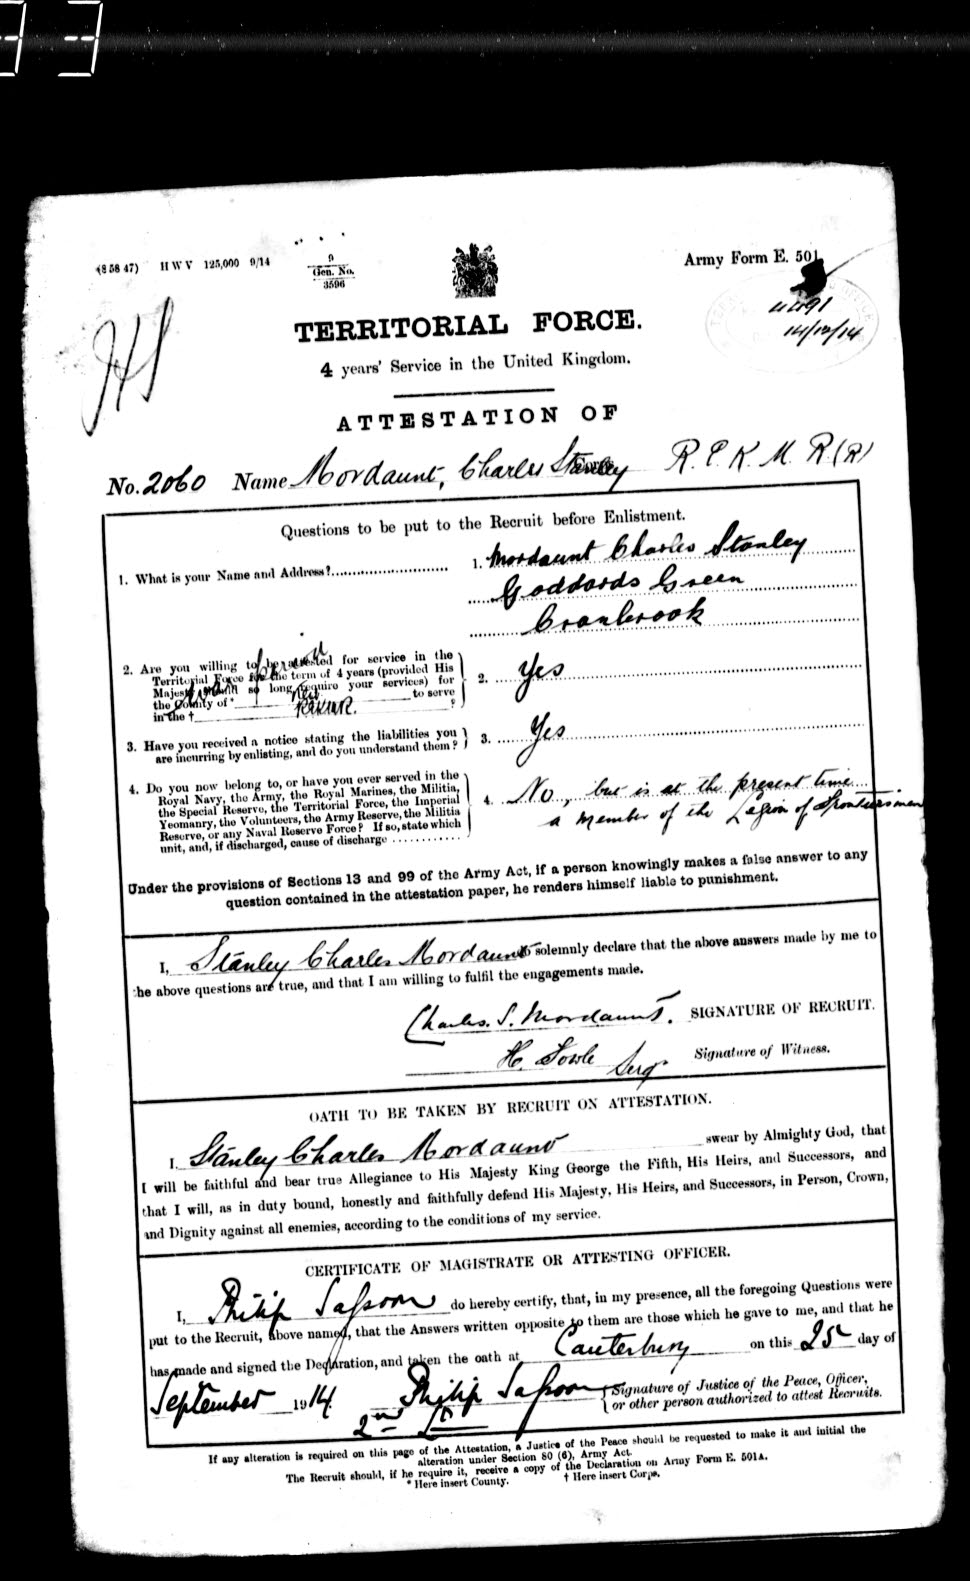 33
(8 58 47) H W V 125,000 9/14
9
Gen. No.
3596
Army Form E. 501.
4491
14/10/14
TERRITORIAL FORCE.
4 years' Service in the United Kingdom.
ATTESTATION OF
No. 2060 Name Mordaunt, Charles Stanley R. E. K. M. R. (R)
Questions to be put to the Recruit before Enlistment.
1. What is your Name and Address? 1. Mordaunt Charles Stanley
Goddards Green
Cranbrook
2. Are you willing to be attested for service in the
Territorial Force for the term of 4 years (provided His
Majesty should so long require your services) for
the County of * to serve
in the † ? 2. Yes
3. Have you received a notice stating the liabilities you
are incurring by enlisting, and do you understand them? 3. Yes
4. Do you now belong to, or have you ever served in the
Royal Navy, the Army, the Royal Marines, the Militia,
the Special Reserve, the Territorial Force, the Imperial
Yeomanry, the Volunteers, the Army Reserve, the Militia
Reserve, or any Naval Reserve Force? If so, state which
unit, and, if discharged, cause of discharge
4. No, but is at the present time
a member of the Legion of Frontiersmen
Under the provisions of Sections 13 and 99 of the Army Act, if a person knowingly makes a false answer to any
question contained in the attestation paper, he renders himself liable to punishment.
I, Stanley Charles Mordaunt solemnly declare that the above answers made by me to
the above questions are true, and that I am willing to fulfil the engagements made.
Charles. S. Mordaunt. SIGNATURE OF RECRUIT.
H. Fowle Sergt Signature of Witness.
OATH TO BE TAKEN BY RECRUIT ON ATTESTATION.
I, Stanley Charles Mordaunt swear by Almighty God, that
I will be faithful and bear true Allegiance to His Majesty King George the Fifth, His Heirs, and Successors, and
that I will, as in duty bound, honestly and faithfully defend His Majesty, His Heirs, and Successors, in Person, Crown,
and Dignity against all enemies, according to the conditions of my service.
CERTIFICATE OF MAGISTRATE OR ATTESTING OFFICER.
I, Philip Sassoon do hereby certify, that, in my presence, all the foregoing Questions were
put to the Recruit, above named, that the Answers written opposite to them are those which he gave to me, and that he
has made and signed the Declaration, and taken the oath at Canterbury on this 25 day of
September 1914. Philip Sassoon Signature of Justice of the Peace, Officer,
2nd Lt or other person authorized to attest Recruits.
If any alteration is required on this page of the Attestation, a Justice of the Peace should be requested to make it and initial the
alteration under Section 80 (6), Army Act.
The Recruit should, if he require it, receive a copy of the Declaration on Army Form E. 501A.
* Here insert County. † Here insert Corps.